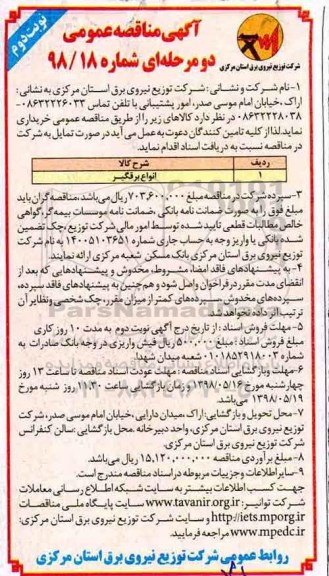 نوبت دوم
آگهی مناقصه عمومی
دو مرحله‌ای شماره ۹۸/۱۸
شرکت توزیع نیروی برق استان مرکزی
۱- نام شرکت و نشانی : شرکت توزیع نیروی برق استان مرکزی به نشانی :
اراک ،خیابان امام موسی صدر، امور پشتیبانی با تلفن تماس ۰۸۶۳۲۲۲۶۰۳۳-
۰۸۶۳۲۲۲۸۰۳۸ در نظر دارد کالاهای زیر را از طریق مناقصه عمومی خریداری
نماید.لذا از کلیه تامین کنندگان دعوت به عمل می آید در صورت تمایل به شرکت
در مناقصه نسبت به دریافت اسناد اقدام نماید.
ردیف شرح کالا
۱ انواع برقگیر
۳-سپرده شرکت در مناقصه مبلغ ۷۰۳,۶۰۰,۰۰۰ ریال می‌باشد،مناقصه گران باید
مبلغ فوق را به صورت ضمانت نامه بانکی ،ضمانت نامه موسسات بیمه گر،گواهی
خالص مطالبات قطعی تایید شده توسط امور مالی شرکت توزیع،چک تضمین
شده بانکی یا واریز وجه به حساب جاری شماره ۱۴۰۰۵۱۰۳۶۵۱ به نام شرکت
توزیع نیروی برق استان مرکزی بانک مسکن شعبه مرکزی ارائه نمایند.
۴- به پیشنهادهای فاقد امضا، مشروط، مخدوش و پیشنهادهایی که بعد از
انقضای مدت مقرر در فراخوان واصل شود و هم چنین به پیشنهادهای فاقد سپرده،
سپرده‌های مخدوش ،سپرده‌های کمتر از میزان مقرر، چک شخصی و نظایر آن
ترتیب اثر داده نخواهد شد.
۵- مهلت فروش اسناد : از تاریخ درج آگهی نوبت دوم به مدت ۱۰ روز کاری
مبلغ فروش اسناد : مبلغ ۵۰۰,۰۰۰ ریال فیش واریزی در وجه بانک صادرات به
شماره ۰۱۰۱۸۵۲۹۱۸۰۰۳ شعبه میدان شهدا.
۶-مهلت و بازگشایی اسناد مناقصه : مهلت عودت اسناد مناقصه تا ساعت ۱۳ روز
چهارشنبه مورخ ۱۳۹۸/۰۵/۱۶ و زمان بازگشایی ساعت ۱۱.۳۰ روز شنبه مورخ
۱۳۹۸/۰۵/۱۹ می‌باشد.
۷- محل تحویل و بازگشایی:اراک ،میدان دارایی ،خیابان امام موسی صدر، شرکت
توزیع نیروی برق استان مرکزی، واحد دبیرخانه .محل بازگشایی :سالن کنفرانس
شرکت توزیع نیروی برق استان مرکزی.
۸- مبلغ برآوردی مناقصه ۱۵,۱۲۰,۰۰۰,۰۰۰ ریال می‌باشد.
۹-سایر اطلاعات و جزییات مربوطه در اسناد مناقصه مندرج است.
جهت کسب اطلاعات بیشتر به سایت شبکه اطلاع رسانی معاملات
شرکت توانیر: www.tavanir.org.ir سایت پایگاه ملی مناقصات
http://iets.mporg.ir و سایت شرکت توزیع نیروی برق استان مرکزی:
www.mpedc.ir مراجعه فرمایید.
روابط عمومی شرکت توزیع نیروی برق استان مرکزی